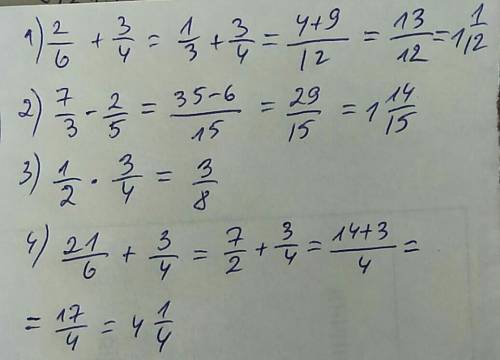 1) 2/6 + 3/4 = 1/3 + 3/4 = (4+9)/12 = 13/12 = 1 1/12
2) 7/3 - 2/5 = (35-6)/15 = 29/15 = 1 14/15
3) 1/2 · 3/4 = 3/8
4) 21/6 + 3/4 = 7/2 + 3/4 = (14+3)/4 =
= 17/4 = 4 1/4